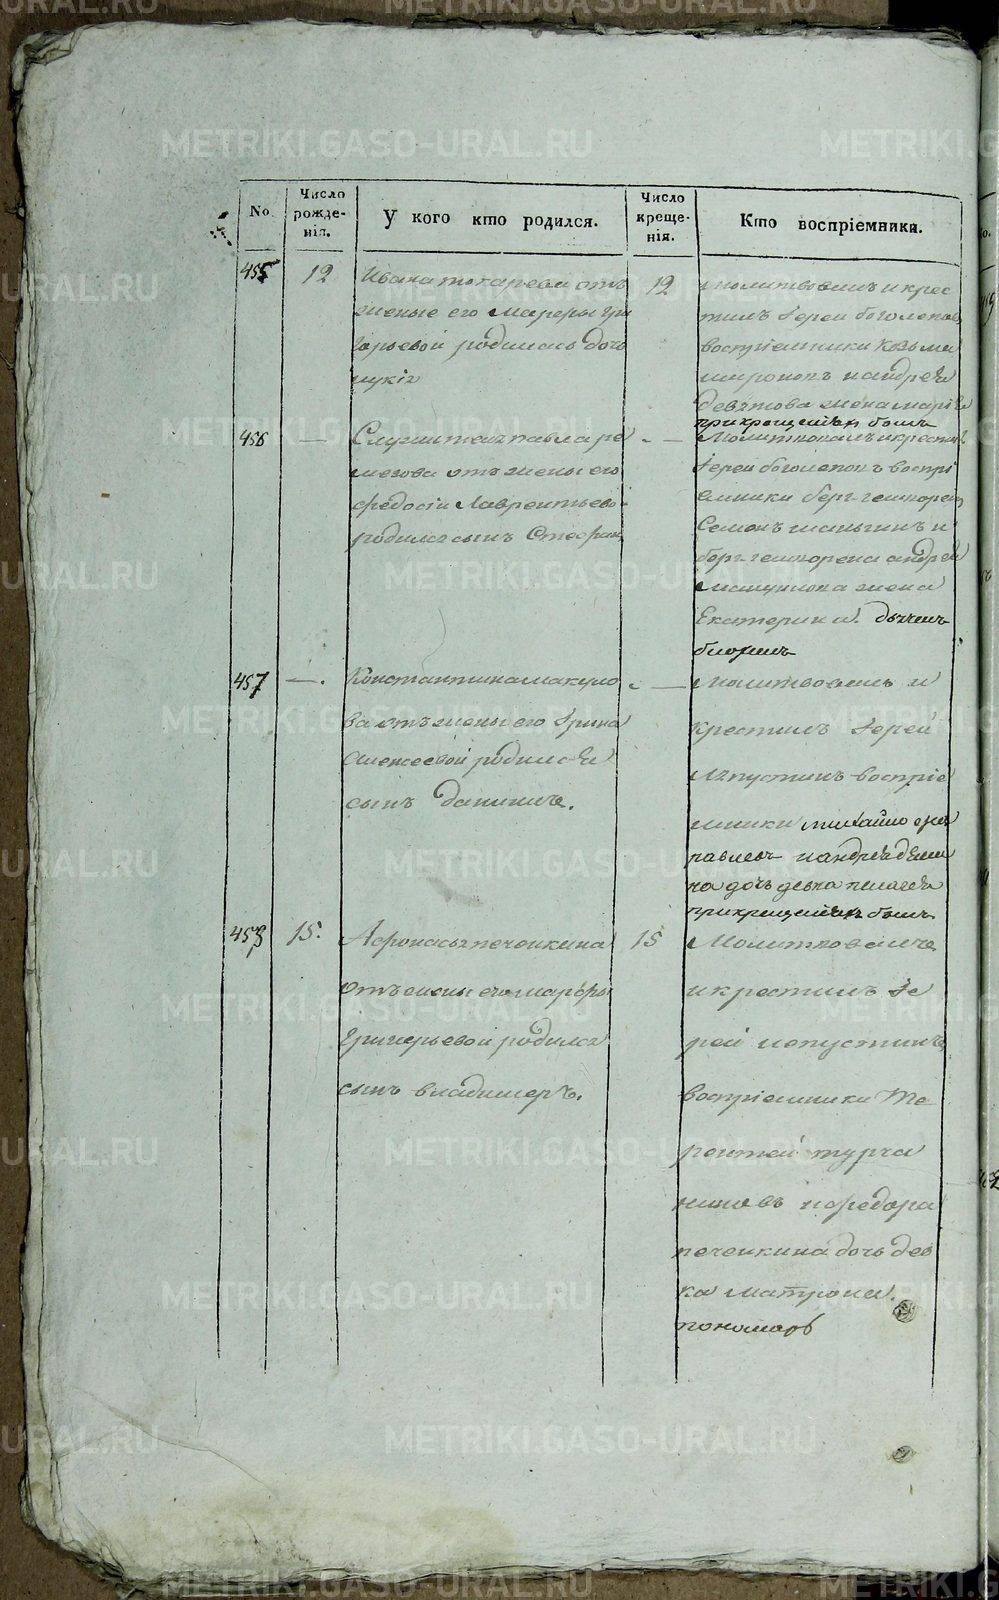 No
Число рожде-
нія.
У кого кто родился.
Число креще-
нія.
Кто воспріемники.
455
12
Ивана токарева отъ
жены его Марѳы гри
горьевой родилась дочь
12
молитвовалъ и крес
тилъ Іерей боголепов
воспріемники Козьма
миронов и андрея
девятова жена марія
при крещеніи былъ
456
—
Служителя павла ре
мезова отъ жены его
федосіи Лаврентьево
родился сынъ Стефан
—
Молитвовалъ и крестил
Іерей боголепов воспрі
емники берг-гешворен
Семенъ и
берг-гешворена андрея
жена
Екатерина.
457
—.
Константина
ва отъ жены его Ирина
Алексеевой родился
сынъ даниилъ.
—
молитвовалъ и
крестилъ Іерей
лапустинъ воспріе
мники михайло
и андрея деми
на дочь девка пелагея
при крещеніи былъ
458
15.
Афонасья печенкина
отъ жены его марѳы
Григорьевой родился
сынъ владимеръ.
15
Молитвовалъ
и крестилъ Іе
рей лапустинъ
воспріемники Те
рентей турча
ниновъ и федора
печенкина дочь дев
ка матрона.
пономарь